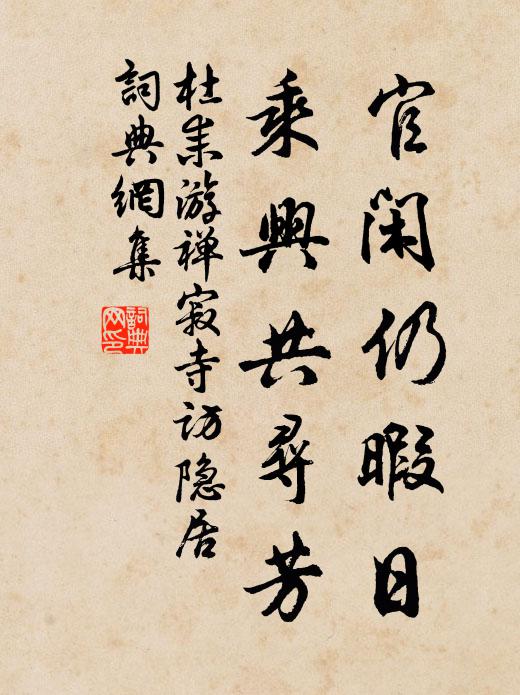 官閑仍暇日
乘興共尋芳
杜耒游禅寂寺访隐居
詞典網集
詞典网印